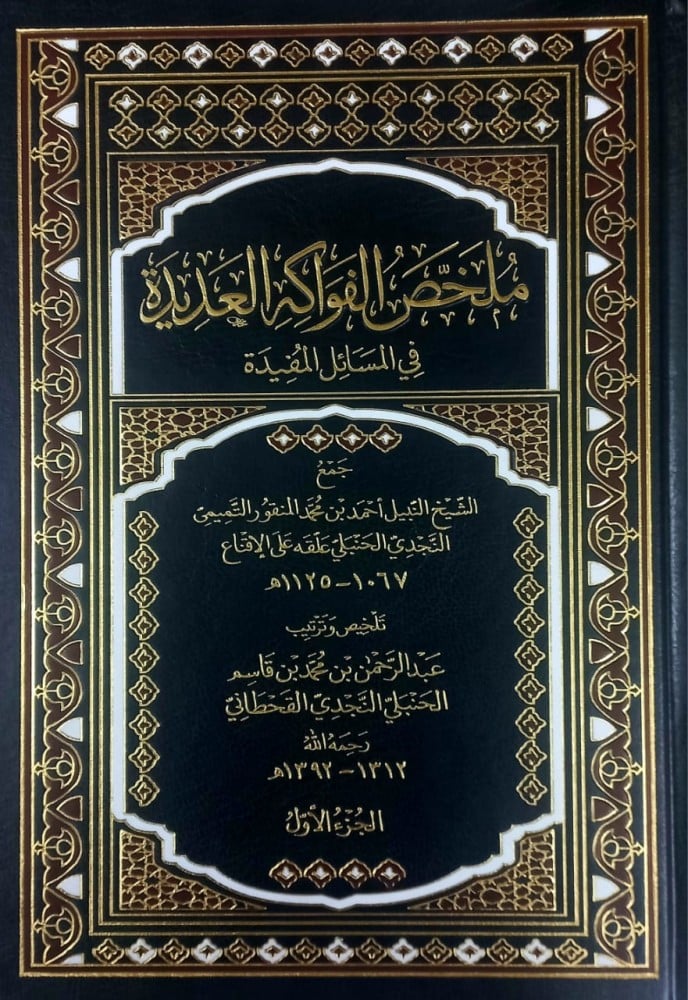 مُلَخَّصُ الفَوَاكِهِ العَدِيدَةِ
فِي المَسَائِلِ المُفِيدَة
جَمْعُ
الشَّيْخِ النَّبِيلِ أَحْمَد بْن مُحَمَّد المَنقُور التَّمِيمِي
النَّجْدِي الحَنْبَلِي عَلَّقَهُ عَلَى الإِقْنَاعِ
١٠٦٧ - ١١٢٥هـ
تَلْخِيص وَتَرْتِيب
عَبْد الرَّحْمٰن بْن مُحَمَّد بْن قَاسِم
الحَنْبَلِيّ النَّجْدِيّ القَحْطَانِيّ
رَحِمَهُ اللهُ
١٣١٢ - ١٣٩٢هـ
الجُزْءُ الأَوَّلُ